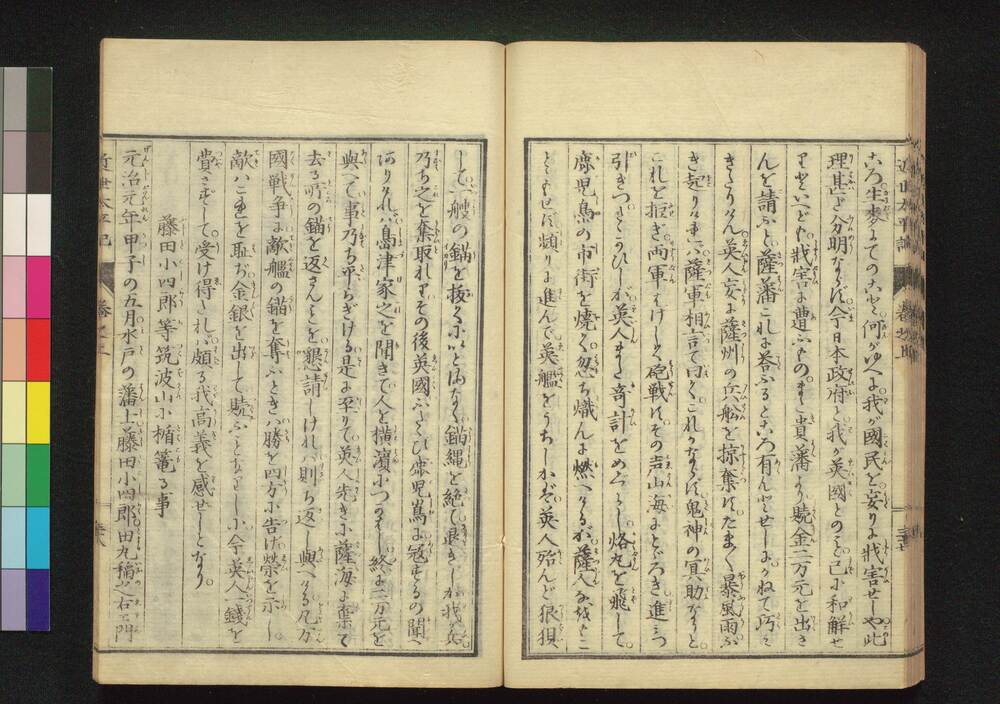 ころ生麦までのこと何がゆへに我が國民を妄りに戕害せしや此
理甚だ分明ならず今日本政府と我が英國とのこと已に和解せ
りといへども戕害に遭ふもの
貴藩より贖金二万元を出さ
んを請ふと薩藩これに答ふるところ有んとせしに
かねて
きたりけん英人妄に薩州の兵舩を掠奪すたま〳〵暴風雨
き起りければ薩軍相言て曰くこれかならず鬼神の冥助なりと
これを拒ぎ両軍はげしく砲戦すその声山海にとどろき進みつ
引きつたゝかひしが英人また奇計をめぐらし烙丸を飛して
鹿児島の市街を焼く忽ち熾んに燃へけるが薩人
ともせず頻りに進んで英艦をうちしかば英人殆んど狼狽
して一艘の錨を抜くにいとまなく錨縄を絶て退きしが我が兵
乃ち之を奪取れりその後英國ふたゝび鹿児島に冦するの聞へ
ありければ島津家之を聞きて人を横濱につかはし終に二万元を
與へて事乃ち平らぎける是に至りて英人先きに薩海に棄て
去る所の錨を返さんことを懇請しければ則ち返し與へける凡万
國戦争に敵艦の錨を奪ふときハ勝を四方に告げ榮を示し
敵ハこれを恥ぢ金銀を出して贖ふことなりしに今英人一錢を
費さずして受け得ければ頗る我高義を感ぜしとなり
藤田小四郎等筑波山に楯篭る事
元治元年甲子の五月水戸の藩士藤田小四郎田丸稲之右衛門
近世太平記